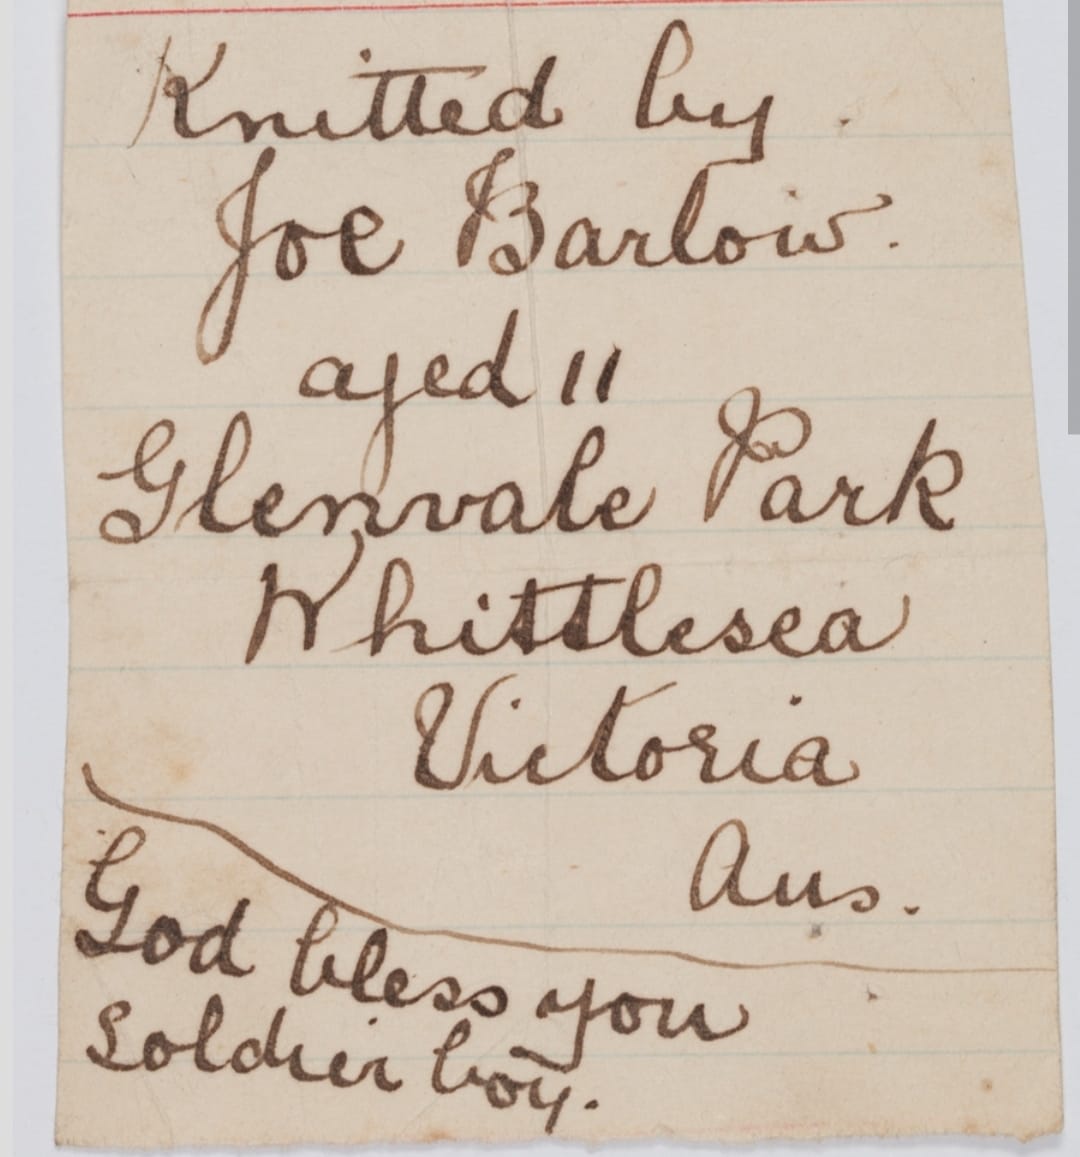 Knitted by.
Joe Barlow.
aged 11
Glenvale Park
Whittlesea
Victoria
Aus.
God bless you
Soldier boy.